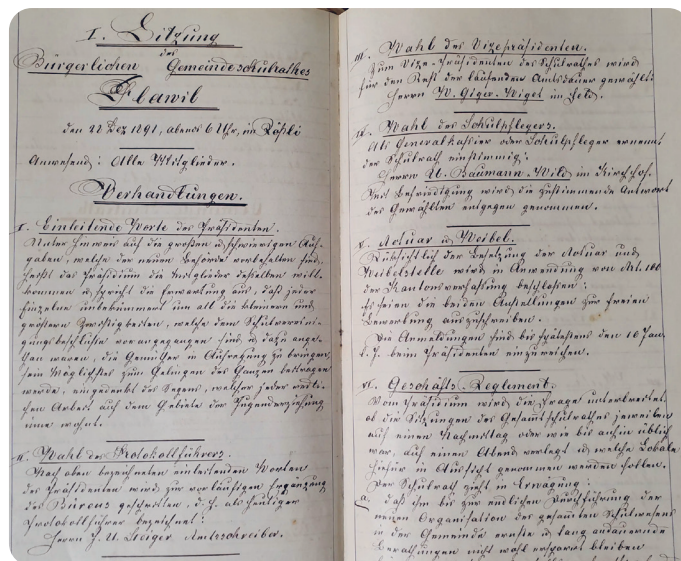 I. Sitzung
des
Bürgerlichen Gemeindeschulrathes
Flawil
den 22 Dez 1891, abends 6 Uhr, im Rößli
Anwesend: Alle Mitglieder.
Verhandlungen.
I. Einleitende Worte des Präsidenten.
Unter Hinweis auf die großen u. schwierigen Auf-
gaben, welche der neuen Behörde vorbehalten sind,
heißt das Präsidium die Mitglieder derselben will-
kommen u. spricht die Erwartung aus, daß jeder
Einzelne unbekümmert um all die kleinern und
größern Zwistigkeiten, welche dem Schulvereini-
gungsbeschlusse vorangegangen sind u. dazu ange-
than waren, die Gemüther in Aufregung zu bringen,
sein Möglichstes zum Gelingen des Ganzen beitragen
werde, eingedenk des Segens, welcher jeder redli-
chen Arbeit auf dem Gebiete der Jugenderziehung
inne wohnt.
II. Wahl des Protokollführers.
Nach oben bezeichneten einleitenden Worten
des Präsidenten wird zur vorläufigen Ergänzung
des Büreaus geschritten, d. h. als heutiger
Protokollführer bezeichnet:
Herrn J. U. Steiger, Amtsschreiber.
III. Wahl des Vizepräsidenten.
Zum Vize-Präsidenten des Schulrathes wird
für den Rest der laufenden Amtsdauer gewählt:
Herrn W. Giger-Wiget im Feld.
IV. Wahl des Schulpflegers.
Als Generalkassier oder Schulpfleger ernennt
der Schulrath einstimmig:
Herrn U. Baumann-Wild im Kirchhof.
Mit Befriedigung wird die zustimmende Antwort
des Gewählten entgegen genommen.
V. Actuar u. Weibel.
Rücksichtlich der Besetzung der Actuar und
Weibelstelle wird in Anwendung von Art. 100
der Kantonsverfassung beschlossen:
Es seien die beiden Anstellungen zur freien
Bewerbung auszuschreiben.
Die Anmeldungen sind bis spätestens den 10 Jan.
l. J. beim Präsidenten einzureichen.
VI. Geschäfts-Reglement.
Vom Präsidium wird die Frage unterbreitet,
ob die Sitzungen des Gesammtschulrathes jeweilen
auf einen Nachmittag oder wie bis anhin üblich
war, auf einen Abend verlegt u. welche Lokale
hiefür in Aussicht genommen werden sollen.
Der Schulrath zieht in Erwägung:
a. daß ihm bis zur endlichen Durchführung der
neuen Organisation des gesammten Schulwesens
in der Gemeinde ernste u. lang andauernde
Berathungen nicht wohl erspart bleiben